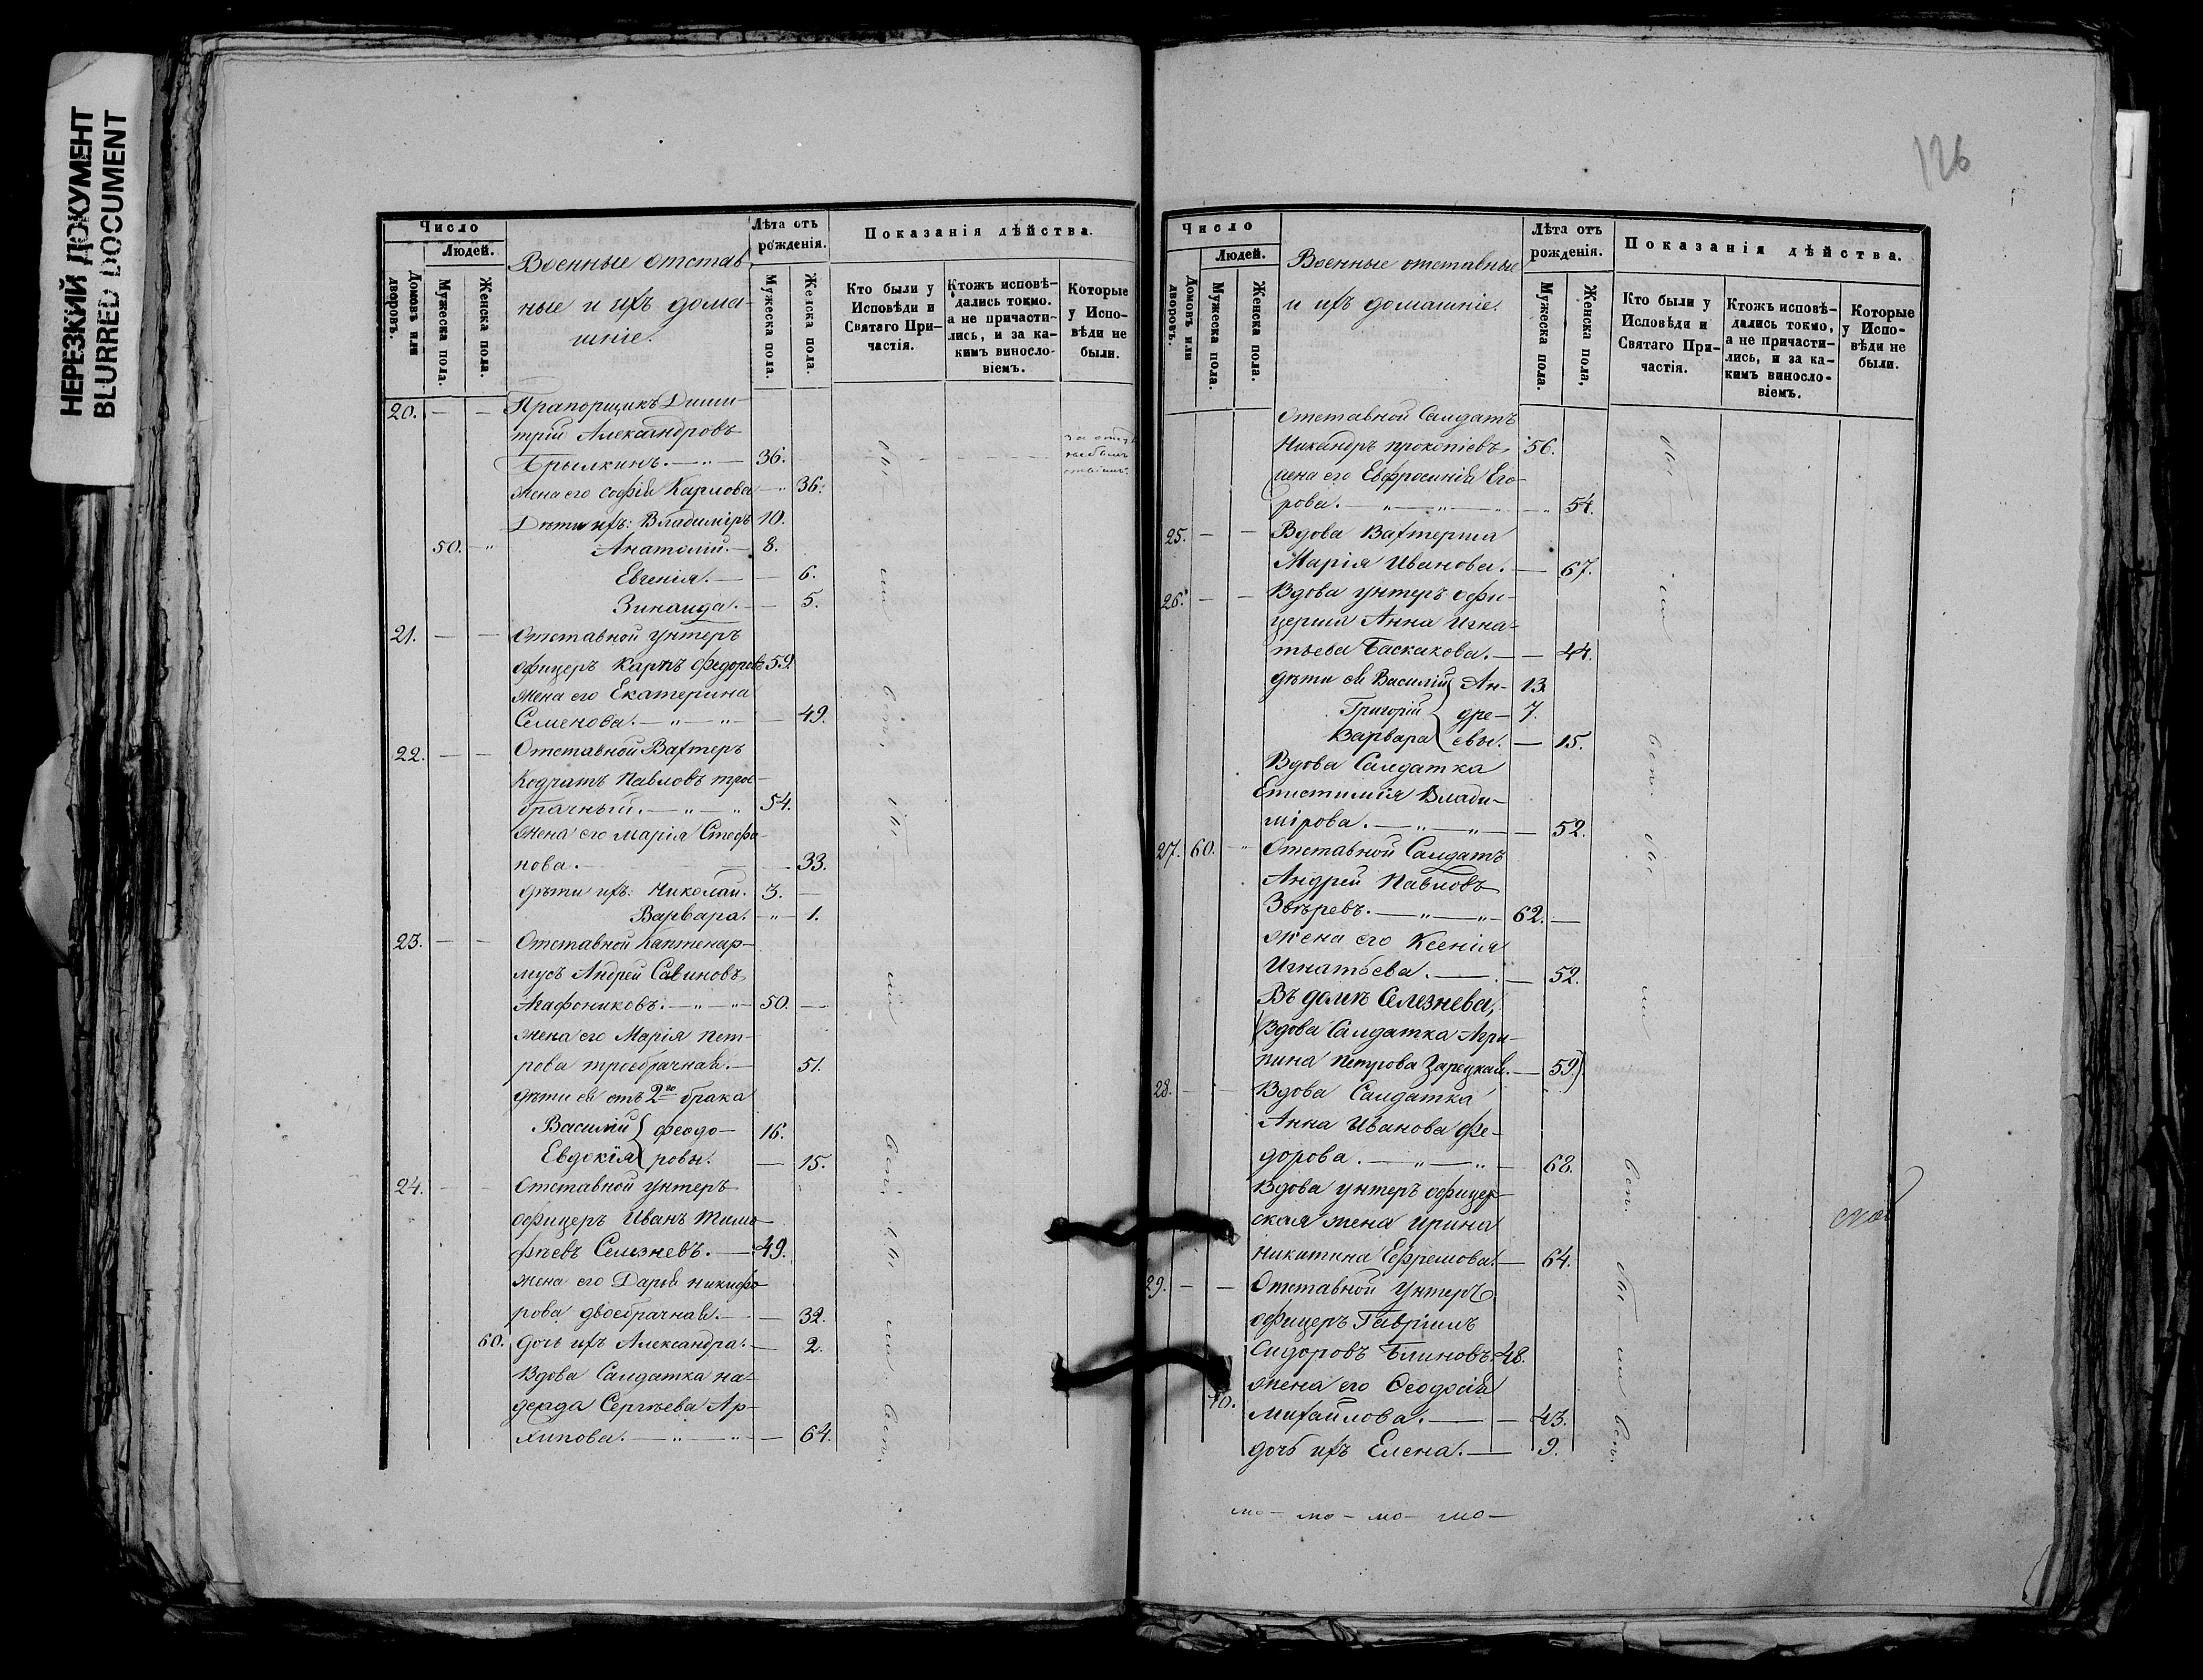 НЕРЕЗКИЙ ДОКУМЕНТ
BLURRED DOCUMENT
Число
Людей.
Домовъ или дворовъ.
Мужеска пола.
Женска пола.
Военные отстав-
ные и ихъ дома-
шніе.
Лѣта отъ рожденія.
Мужеска пола.
Женска пола.
Показанія дѣйства.
Кто были у Исповѣди и Святаго При-частія.
Ктожъ исповѣ-дались токмо. а не причасти-лись, и за ка-кимъ винсло-віемъ.
Которые у Испо-вѣди не были.
20. — — Прапорщикъ Дими-
трій Александровъ
Брылкинъ. — „ — 36.
жена его Софія Карлова — „ 36.
Дѣти ихъ: Владиміръ 10.
50. — „ Анатолій. — 8.
Евгенія. — — 6.
Зинаида. — — 5.
21. — — Отставной унтеръ
офицеръ Карпъ Федоровъ 59.
жена его Екатерина
Семенова. — „ — „ — — 49.
22. — — Отставной Вахтеръ
Кодратъ Павловъ трое-
брачный. — „ — „ 54.
жена его Марія Стефа-
нова. — — 33.
дѣти ихъ: Николай. 3. —
Варвара. — „ — 1.
23. — — Отставной Каптенар-
мусъ Андрей Савиновъ
Агафониковъ. — „ — „ — 50. —
жена его Марія Пет-
рова троебрачная. — 51.
дѣти ея отъ 2го брака
Василій } Феодо- 16.
Евдокія } ровы. — 15.
24. — — Отставной унтеръ
офицеръ Иванъ Тимо-
фѣевъ Селезневъ. — 49.
жена его Дарья Никифо-
рова двоебрачная. — — 32.
60. дочь ихъ Александра. — 2.
Вдова Салдатка На-
дежда Сергѣева Ар-
хипова. — „ — „ — 64.
были
у
исп.
были
у
исп.
были
у
исп.
126
Число
Людей.
Домовъ или дворовъ.
Мужеска пола.
Женска пола.
Военные отставные
и ихъ домашніе.
Лѣта отъ рожденія.
Мужеска пола.
Женска пола,
Показанія дѣйства.
Кто были у Исповѣди и Святаго При-частія.
Ктожъ исповѣ-дались токмо, а не причасти-лись, и за ка-кимъ винсло-віемъ.
Которые у Испо-вѣди не были.
Отставной Салдатъ
Никандръ Прокопіевъ, 56.
жена его Евфросинія Его-
рова. — „ — „ — „ 54.
25. — — Вдова Вахтерша
Марія Иванова. — 67.
26. — — Вдова унтеръ офи-
церша Анна Игна-
тьева Баскакова. — — 44.
дѣти ея Василій } Ан- 13.
Григорій } дре- 7.
Варвара } евы. — 15.
Вдова Салдатка
Епистимія Влади-
мірова. — „ — „ — — 52.
27. 60. — „ Отставной Салдатъ
Андрей Павловъ
Звѣревъ. — „ — „ — 62. —
жена его Ксенія
Игнатьева. — — 52.
Въ домѣ Селезнева,
(Вдова Салдатка Агри-
пина Петрова Зарецкая. — 59.)
28. — — Вдова Салдатка
Анна Иванова Фе-
дорова. — „ — „ — 68.
Вдова унтеръ офицер-
ская жена Ирина
Никитина Ефремова. — 64.
29. — — Отставной Унтеръ
офицеръ Гавріилъ
Сидоровъ Блиновъ. 48.
жена его Феодосія
70. Михайлова. — — 43.
дочь ихъ Елена. — 9.
были
у
исп.
были
у
исп.
были
у
исп.
мо- мо- мо- мо-